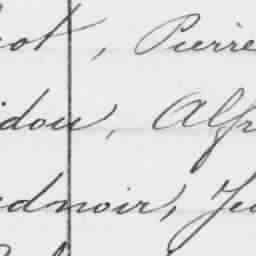 cot, Pierre
idou, Alfr
ednoir, Jea